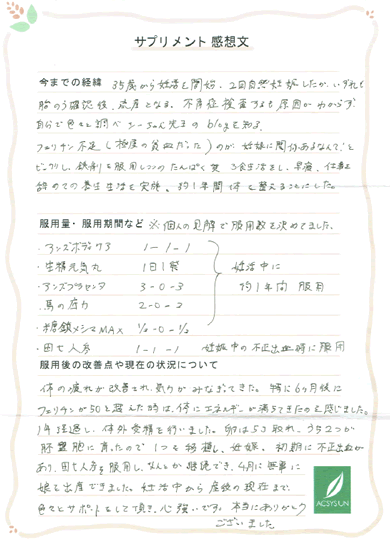 サプリメント 感想文
今までの経緯 35歳から妊活を開始。2回自然妊娠したが、いずれも
胎のう確認後、流産となる。不育症検査するも原因がわからず
自分で色々と調べ しーちゃん先生のblogを知る。
フェリチン不足(極度の貧血だった)のが、妊娠に関分あるなんて!と
ビックリし、鉄剤を服用しつつのたんぱく質
辞めての養生生活を実施。約1年間体を整えることにした。
服用量・服用期間など ※個人の見解で服用数を決めてました。
1-1-1
・生精元気丸 1日1袋
・アンズプラセンタ 3-0-3
・馬の底力 2-0-2
・糖鎖メシマMAX ½-0-½
・田七人参 1-1-1 妊娠中の不正出血時に服用
妊活中に
約1年間 服用
服用後の改善点や現在の状況について
体の疲れが改善され、気力がみなぎってきた。特に6ヶ月後に
フェリチンが50を超えた時は、体にエネルギーが満ちてきたのを感じました。
1年経過し、体外受精を行いました。卵は5コ取れ、うち2つが
胚盤胞に育ったので1つを移植し、妊娠。初期に不正出血が
あり、田七人参を服用し、なんとか継続でき、4月に無事に
娘を出産できました。妊活中から産後の現在まで、
色々とサポートをして頂き、心強いです。本当にありがとう
ございました
ACSYSUN